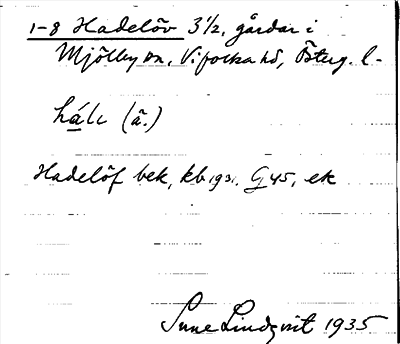 1-8 Hadelöv 3 1/2, gårdar i
Mjölby sn, Vifolka hd, Österg. l.
hálı (ä.)
Hadelöf bek, kb 1931. G 45, ek
Sune Lindqvist 1935